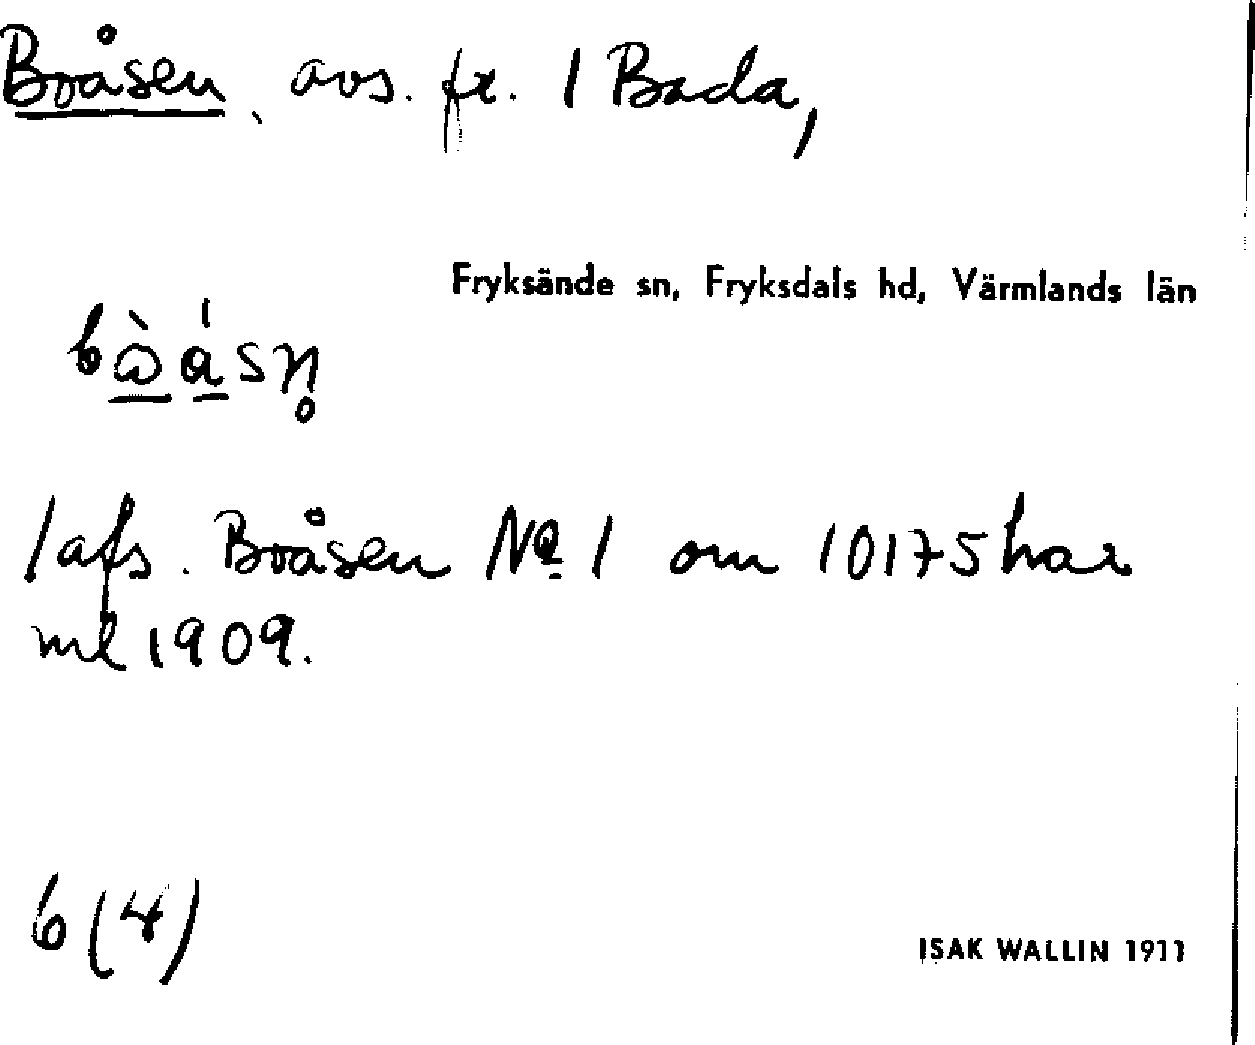 Boåsen, avs. fr. 1 Bada,
Fryksände sn, Fryksdals hd, Värmlands län
bὼá̱sn̥
1 afs. Boåsen № 1 om 10175 har
ml 1909.
6 (4)
ISAK WALLIN 1911